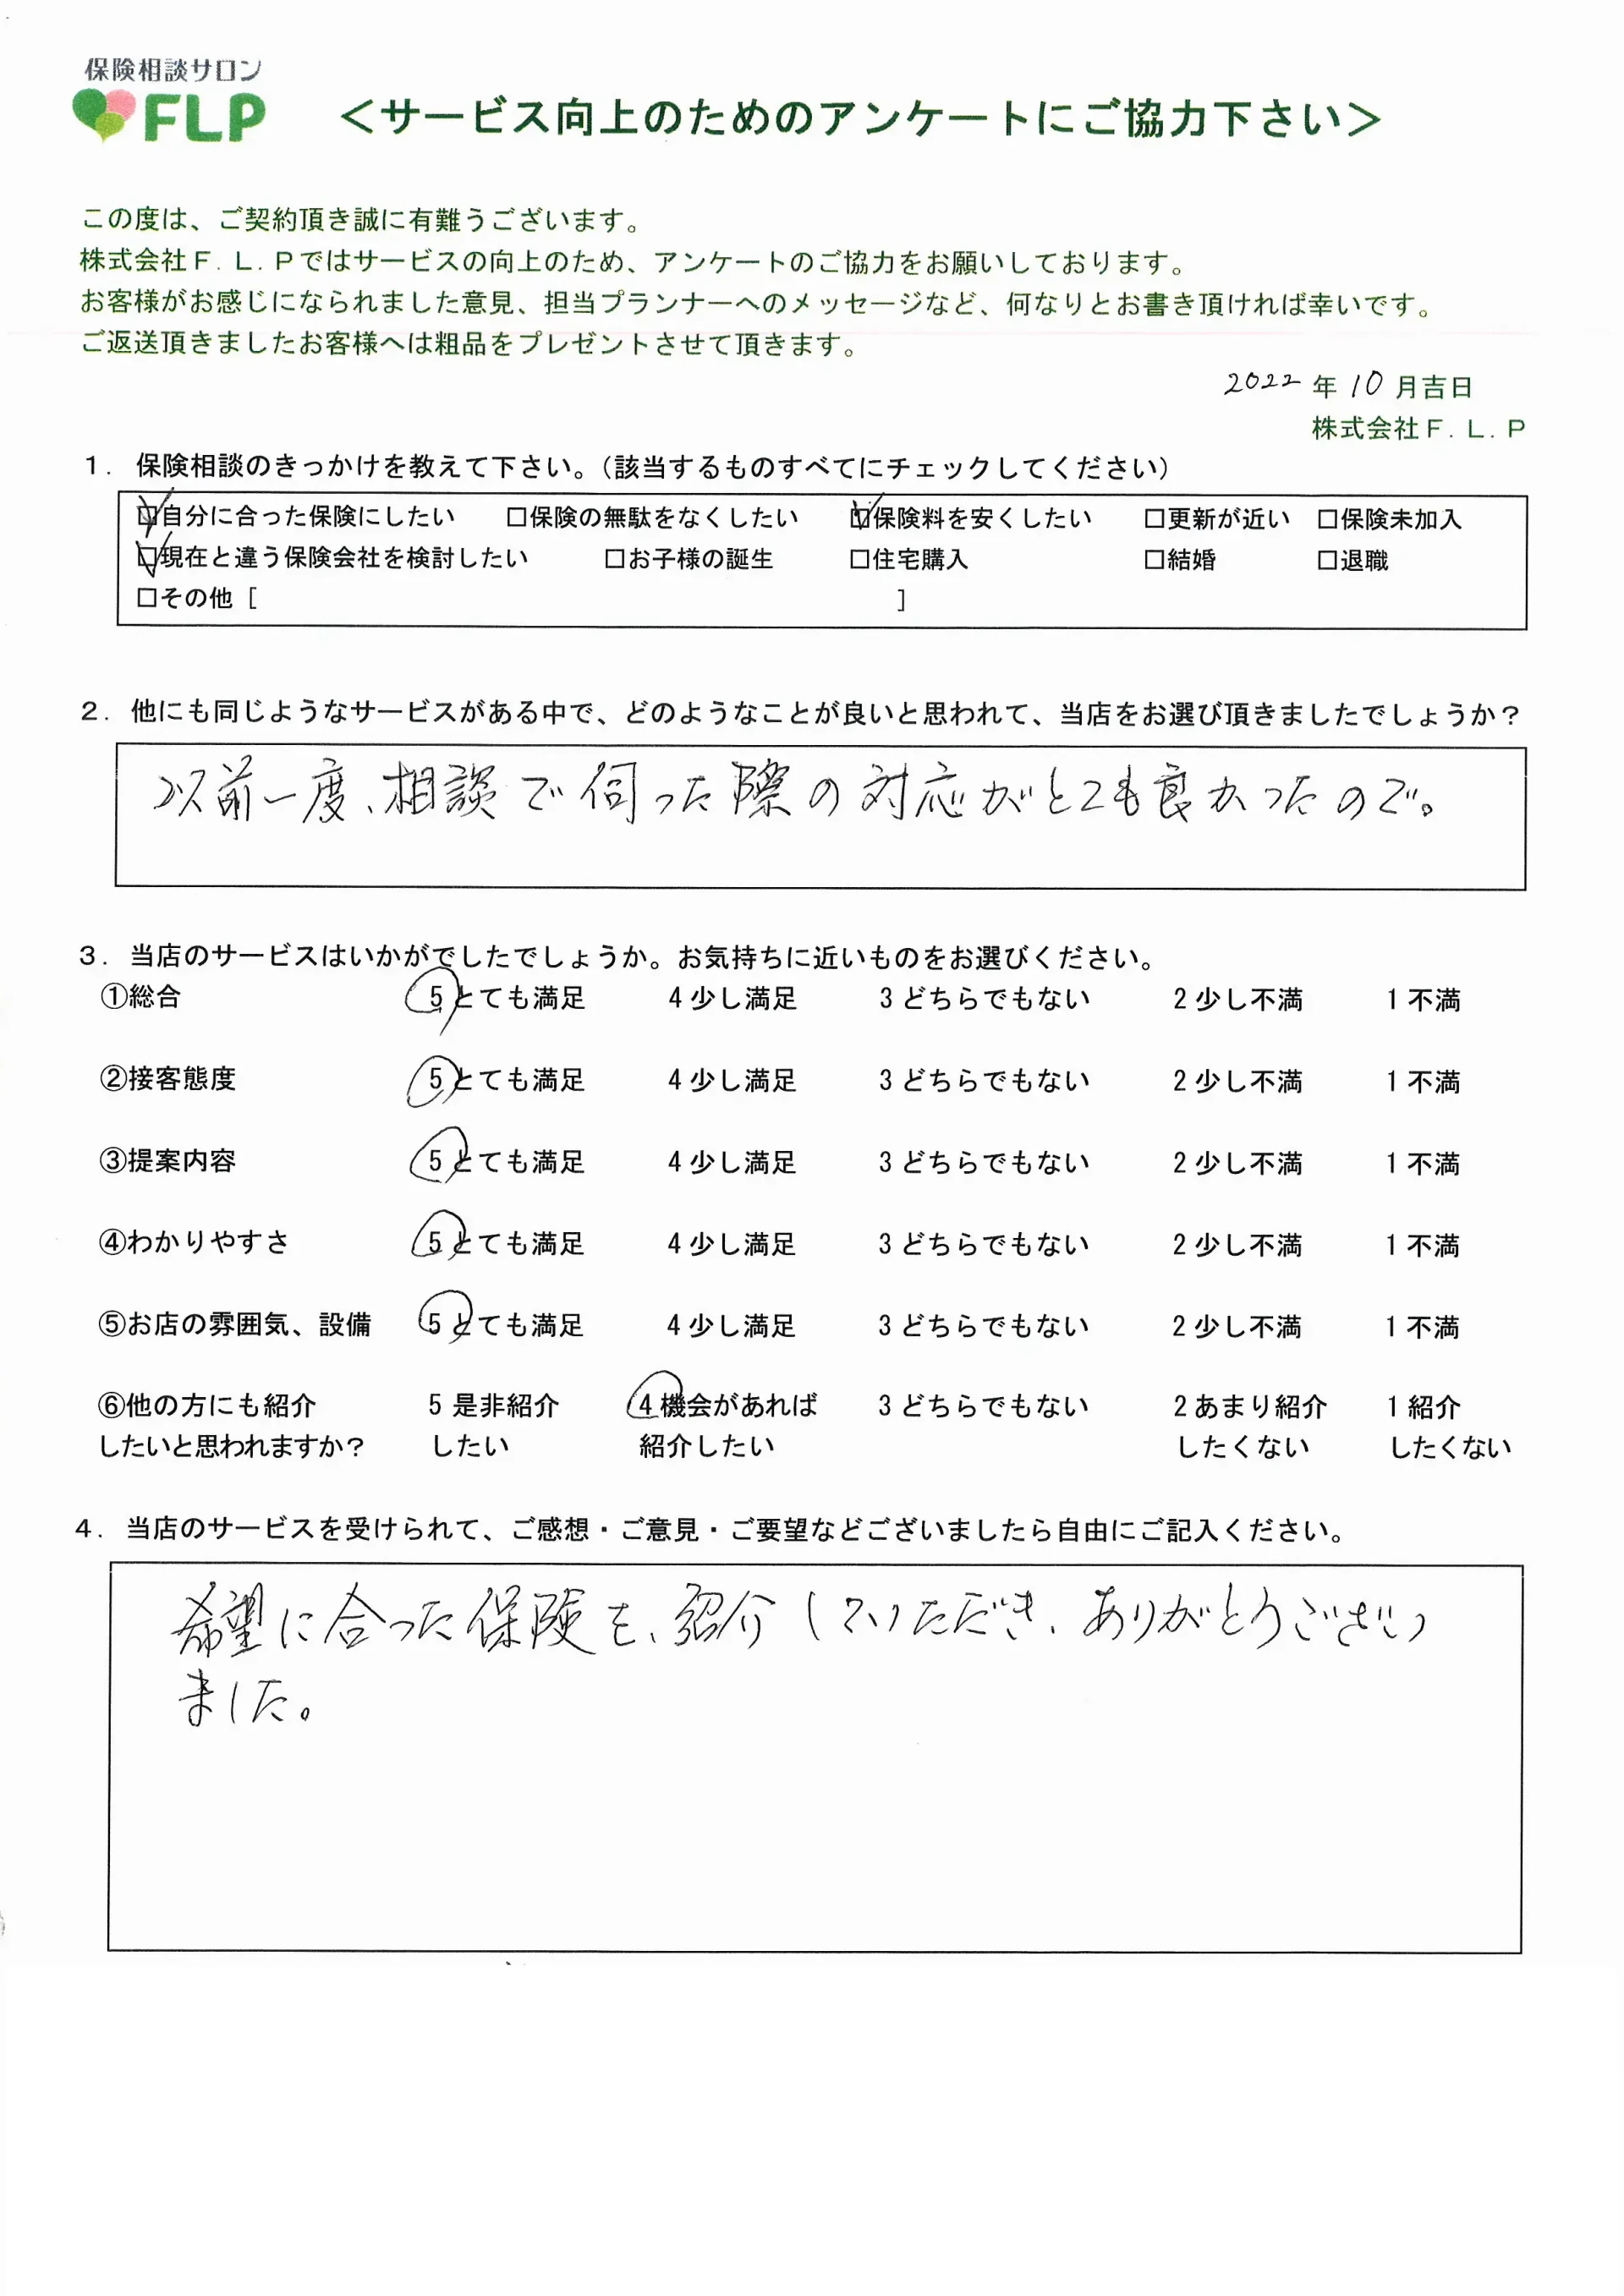 保険相談サロン
FLP
＜サービス向上のためのアンケートにご協力下さい＞
この度は、ご契約頂き誠に有難うございます。
株式会社Ｆ．Ｌ．Ｐではサービスの向上のため、アンケートのご協力をお願いしております。
お客様がお感じになられました意見、担当プランナーへのメッセージなど、何なりとお書き頂ければ幸いです。
ご返送頂きましたお客様へは粗品をプレゼントさせて頂きます。
2022 年 10 月吉日
株式会社Ｆ．Ｌ．Ｐ
１．保険相談のきっかけを教えて下さい。（該当するものすべてにチェックしてください）
☑自分に合った保険にしたい □保険の無駄をなくしたい ☑保険料を安くしたい □更新が近い □保険未加入
☑現在と違う保険会社を検討したい □お子様の誕生 □住宅購入 □結婚 □退職
□その他 [ ]
２．他にも同じようなサービスがある中で、どのようなことが良いと思われて、当店をお選び頂きましたでしょうか？
以前一度、相談で伺った際の対応がとても良かったので。
３．当店のサービスはいかがでしたでしょうか。お気持ちに近いものをお選びください。
①総合 5 とても満足 4 少し満足 3 どちらでもない 2 少し不満 1 不満
②接客態度 5 とても満足 4 少し満足 3 どちらでもない 2 少し不満 1 不満
③提案内容 5 とても満足 4 少し満足 3 どちらでもない 2 少し不満 1 不満
④わかりやすさ 5 とても満足 4 少し満足 3 どちらでもない 2 少し不満 1 不満
⑤お店の雰囲気、設備 5 とても満足 4 少し満足 3 どちらでもない 2 少し不満 1 不満
⑥他の方にも紹介 5 是非紹介 4 機会があれば 3 どちらでもない 2 あまり紹介 1 紹介
したいと思われますか？ したい 紹介したい したくない したくない
４．当店のサービスを受けられて、ご感想・ご意見・ご要望などございましたら自由にご記入ください。
希望に合った保険を、紹介していただき、ありがとうござい
ました。